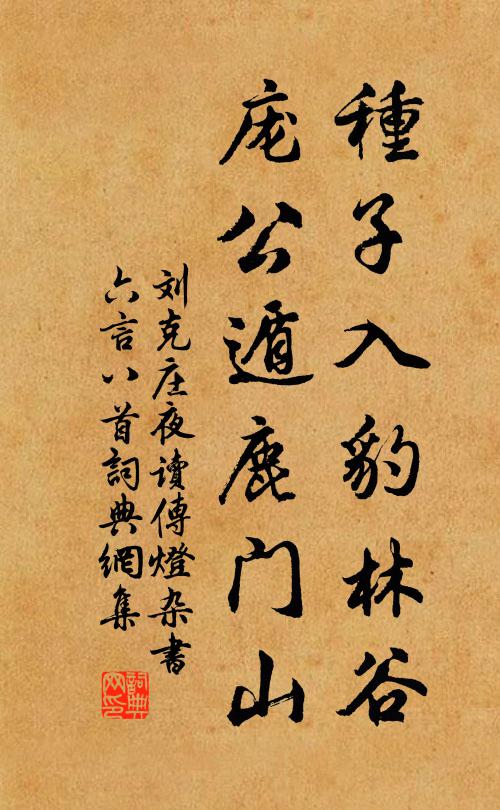 種子入豹林谷
庞公遁鹿门山
刘克庄夜讀傳燈杂書
六言八首詞典網集
詞典网印